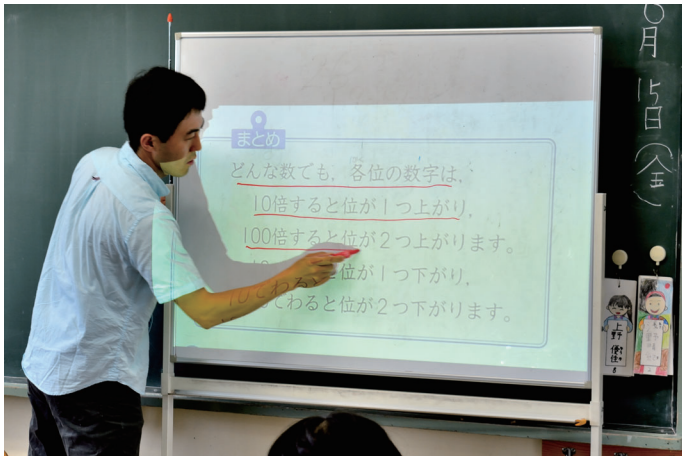 まとめ
どんな数でも，各位の数字は，
10倍すると位が1つ上がり，
100倍すると位が2つ上がります。
10でわると位が1つ下がり，
わると位が2つ下がります。
月15日(金)
上野